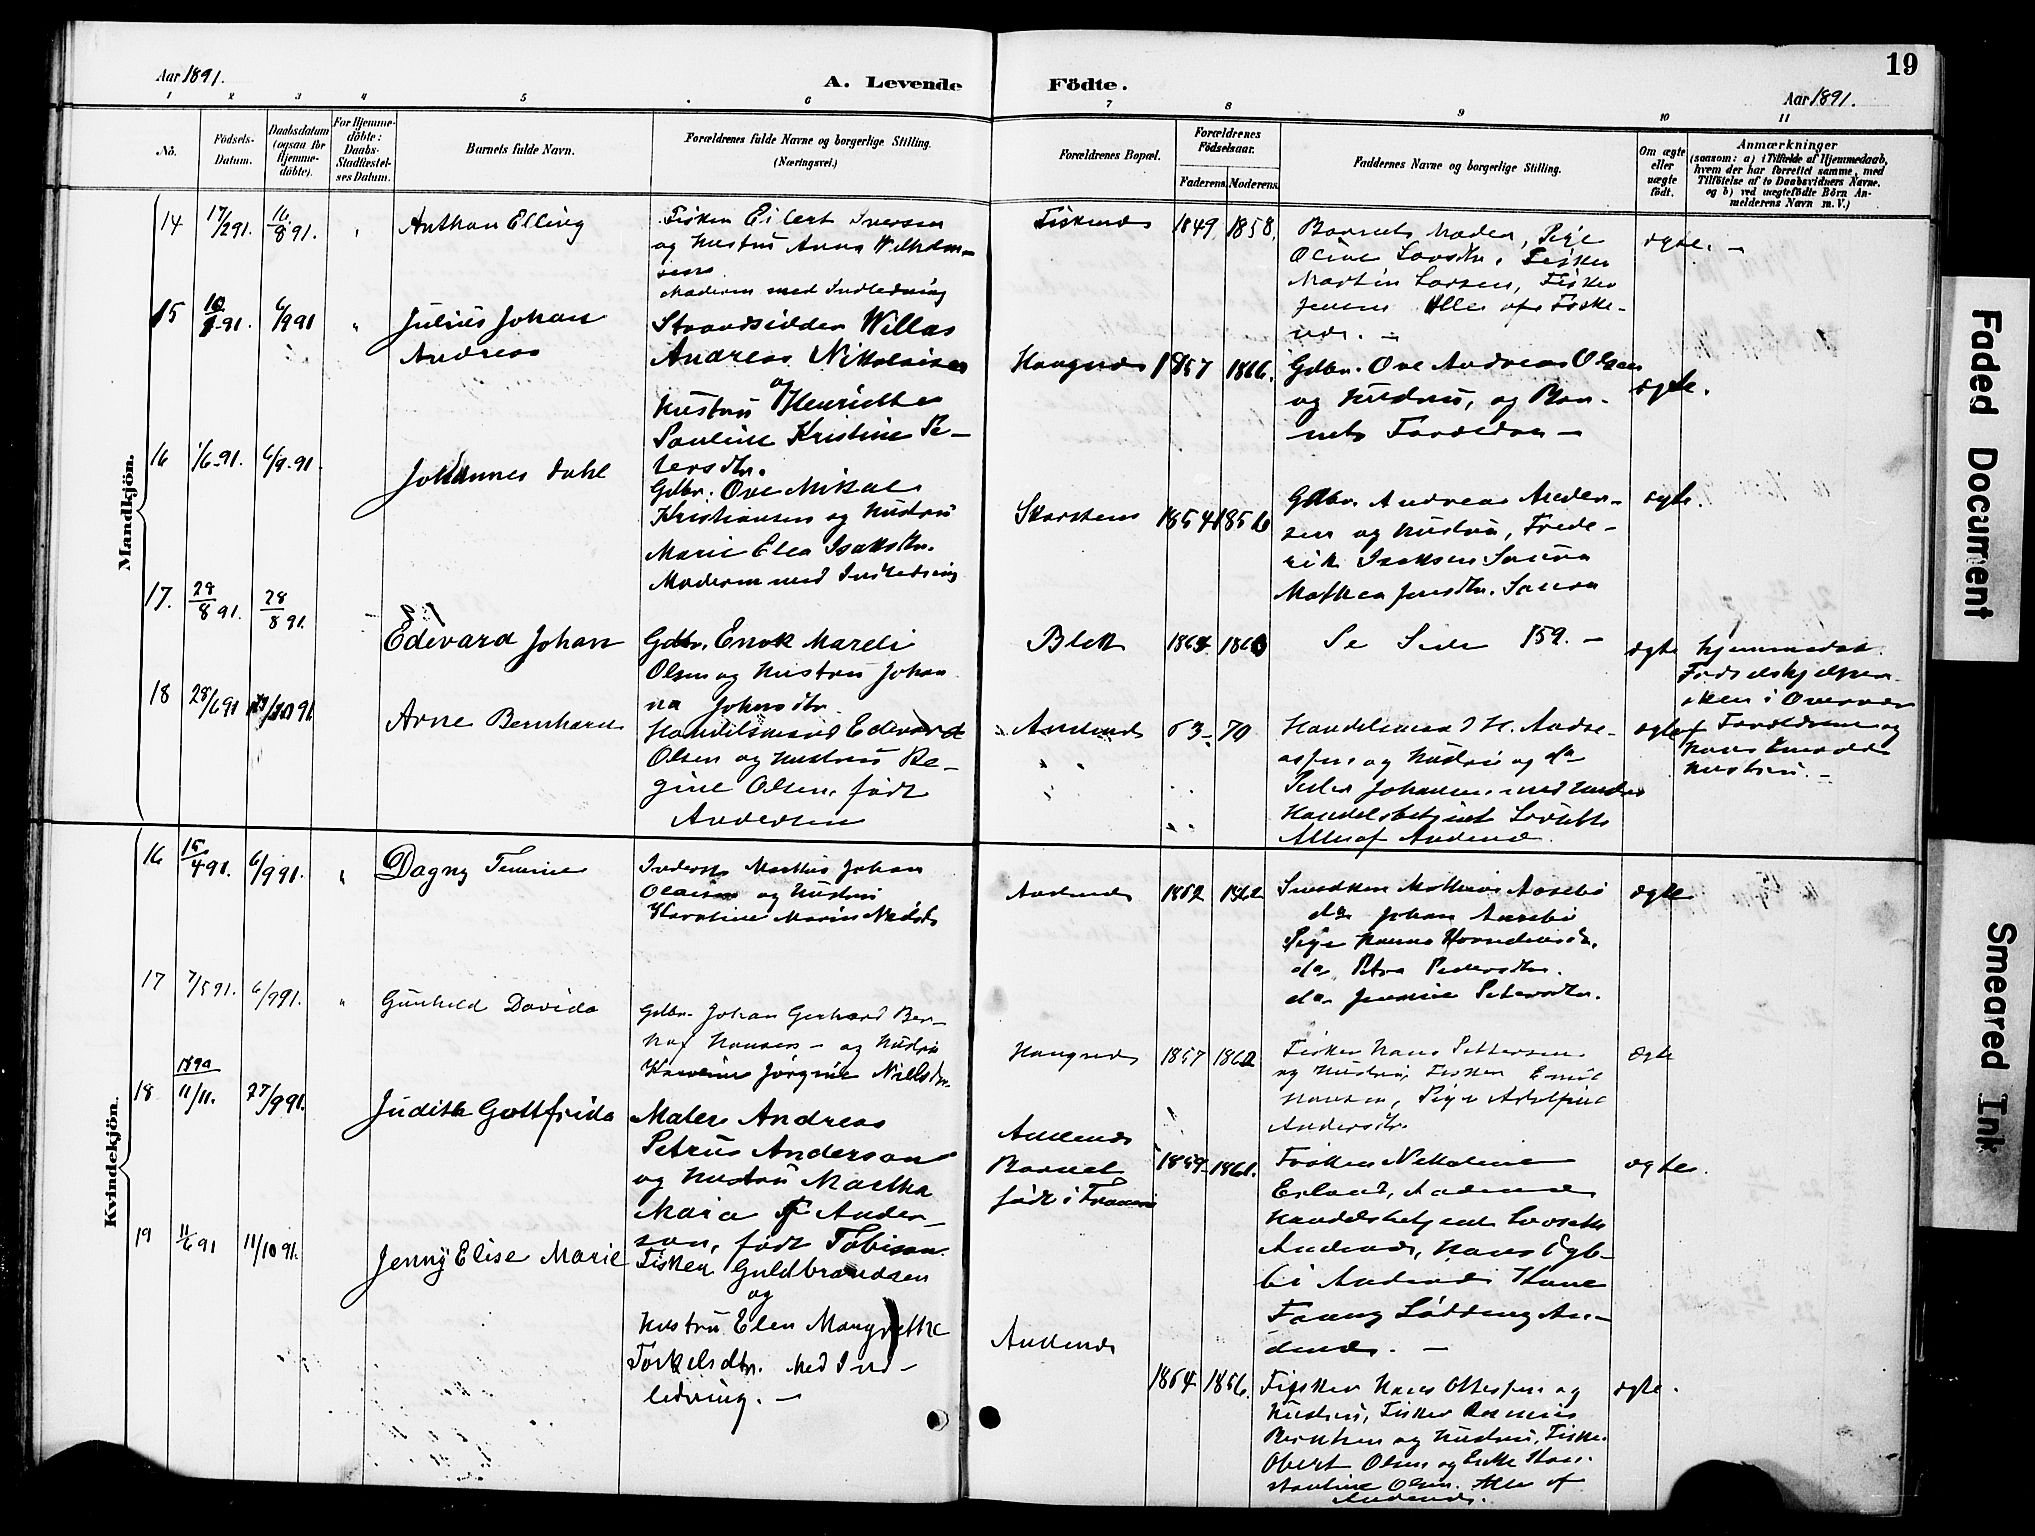 19
Aar 1891.
A. Levende
Födte.
Aar 1891.
1 2 3 4 5 6 7 8 9 10 11
No.
Födsels-
Datum.
Daabsdatum
(ogsaa for
Hjemme-
döbte).
For Hjemme-
döbte:
Daabs-
Stadfæstel-
ses Datum.
Barnets fulde Navn.
Forældrenes fulde Navne og borgerlige Stilling.
(Næringsvei.)
Forældrenes Bopæl.
Forældrenes
Födselsaar.
Faderens. Moderens.
Faddernes Navne og borgerlige Stilling.
Om ægte
eller
uægte
födt.
Anmærkninger
(saasom: a) i Tilfælde af Hjemmedaab,
hvem der har forrettet samme, med
Tilföielse af to Daabsvidners Navne,
og b) ved uægtefödte Börn An-
melderens Navn m. V.)
Mandkjön.
14 17/2 91. 16/8 91. Anthon Elling
Fisker Eilert Iversen
og Hustru Anna
Moderen med Indledning
Fiskenes 1849 1858.
Barnets Moder, Pige
Oline Larsdtr, Fisker
Martin Larsen, Fisker
Jenssen Alle af Fiske-
nes. —
ægte. —
15 6/9 91 Julius Johan
Andreas
Strandsidder Willas
Andreas Nikolaisen
og
Hustru Henriethe
Pauline Kristine Pe-
tersdtr.
Haugnes 1857 1866.
Gdbr. Ove Andreas Olsen
og Hustru, og Bar-
nets Forældre —
ægte.
16 1/6 91. 6/9 91. Johannes Dahl
Gdbr. Ove Mikal
Kristiansen og Hustru
Marie Elea Isaksdtr.
Moderen med Indledning
Skarsten 1854 1856
Gdbr. Andreas Ander-
sen og Hustru, Frede-
rik Isaksen Saura
Mathea Jensdtr. Saura
ægte.
17. 28/8 91. 28/8 91. Edevard Johan
Gdbr. Enok Mareli
Olsen og Hustru Johan
na Johnsdtr.
Bleik
Se Side 159. —
ægte
Hjemmedøb.
i
Forældrene og
Hans
Hustru. —
18 28/6 91 Arne Bernhard
Handelsmand Edevard
Olsen og Hustru Re-
gine Olsen, født
Andersen
Andenes 63 70
Handelsmand H. Andre-
assen og Hustru og do
Peder Johansen med Hustru
Handelsbetjent
Alle af Andenes.
ægte
Kvindekjön.
16 15/4 91. 6/9 91. Dagny
Johan
og Hustru
Karoline Marie
Andenes 1862 1862
Mathias Aasebø
do Johan Aasebø
Pige Hanna
do Petra Pedersdtr.
do Petersdtr.
ægte
17 7/5 91. 6/9 91. Gunhild Davida
Gdbr. Johan Gerhard Ber-
Hansen — og Hustru
Jørgine Nilsdtr.
Haugnes 1857
Fisker Hans Pettersen
og Hustru, Fisker Emil
Hansen, Pige Adolfine
Andersdtr.
ægte
18 1890 11/11. 27/9 91. Judith Gottfrida
Maler Andreas
Petrus Anderson
og Hustru Martha
Maria Ander-
son, født Tobison
Andenes
Barnet
født i Tromsø
1859 1861.
Frøken Nikoline
Erland, Andenes
Handelsbetjent
Andenes, Hans
Andenes Kone
Fanny Lødding An-
denes. —
ægte.
19 11/6 91 11/10 91. Jenny Elise Marie
Fisker Guldbrandsen
og
Hustru Elen Margrethe
Torkelsdtr. Med Ind-
ledning. —
Andenes
1864 1856.
Fisker Hans Ottesen og
Hustru, Fisker Rasmus
Berntsen og Hustru, Fisker
Obert Olsen og Enke Kon-
stantine Olsen. Alle af
Andenes.
ægte.
Faded Document
Smeared Ink